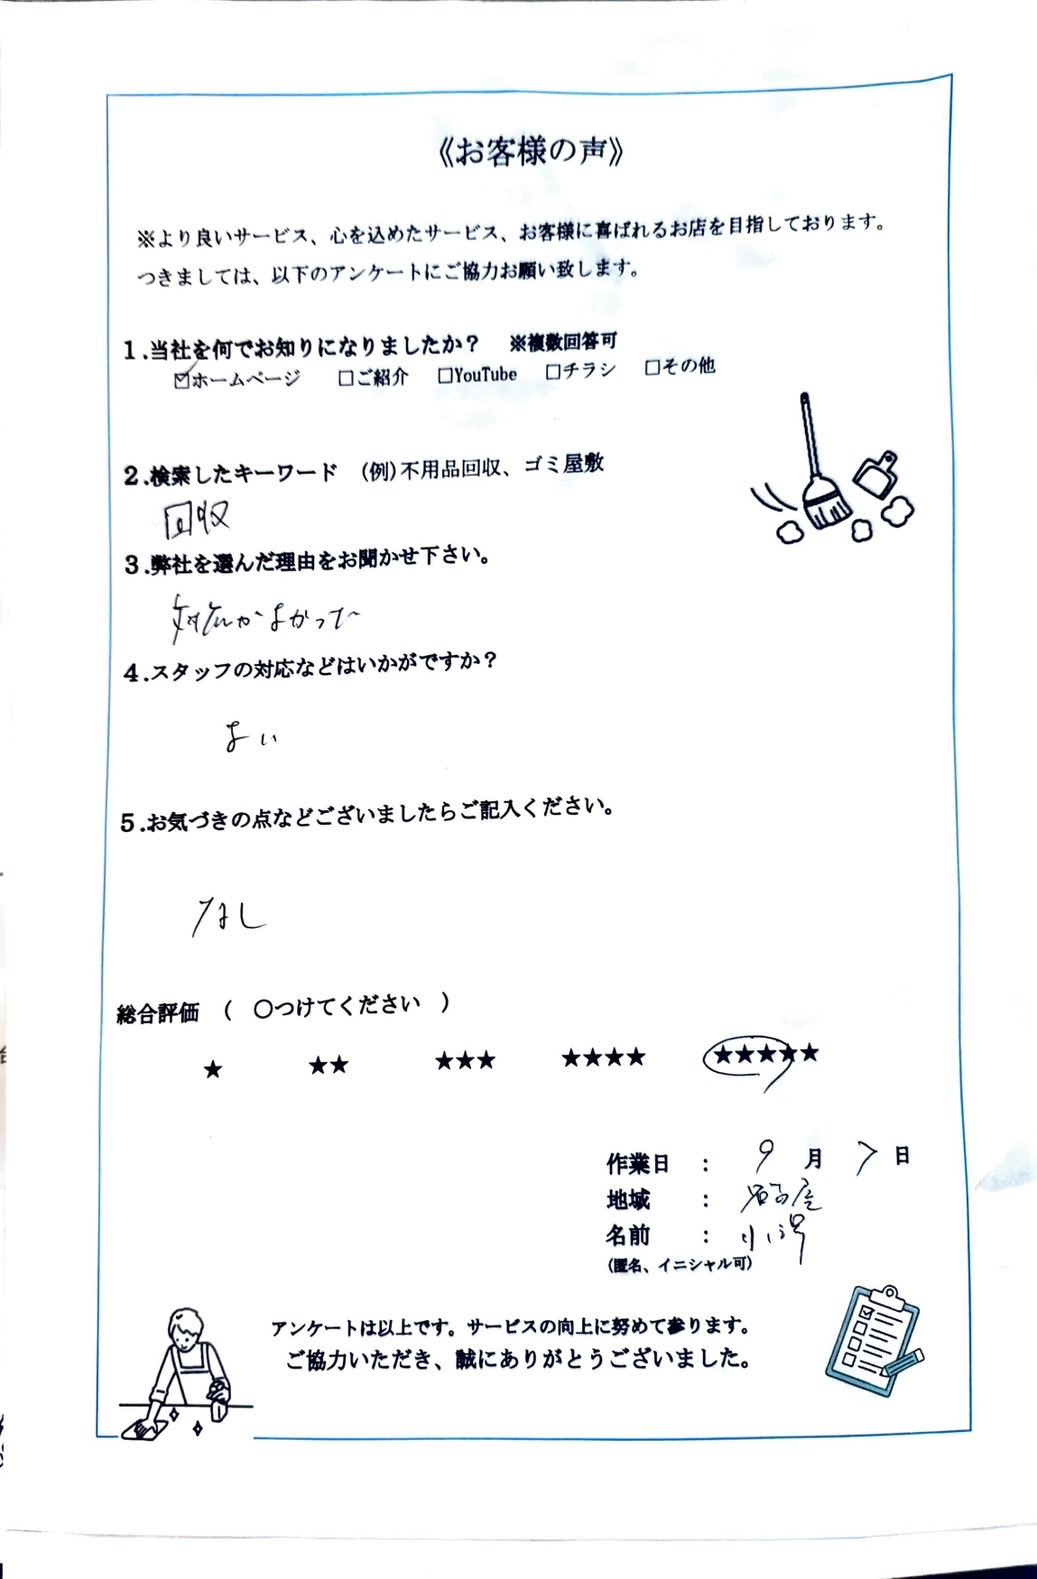 《お客様の声》
※より良いサービス、心を込めたサービス、お客様に喜ばれるお店を目指しております。
つきましては、以下のアンケートにご協力お願い致します。
１.当社を何でお知りになりましたか？　※複数回答可
☑ホームページ　□ご紹介　□YouTube　□チラシ　□その他
２.検索したキーワード　(例)不用品回収、ゴミ屋敷
回収
３.弊社を選んだ理由をお聞かせ下さい。
対応がよかった
４.スタッフの対応などはいかがですか？
よい
５.お気づきの点などございましたらご記入ください。
なし
総合評価　(　〇つけてください　)
★　★★　★★★　★★★★　★★★★★
作業日　：　9　月　7　日
地域　：　名古屋
名前　：
(匿名、イニシャル可)
アンケートは以上です。サービスの向上に努めて参ります。
ご協力いただき、誠にありがとうございました。